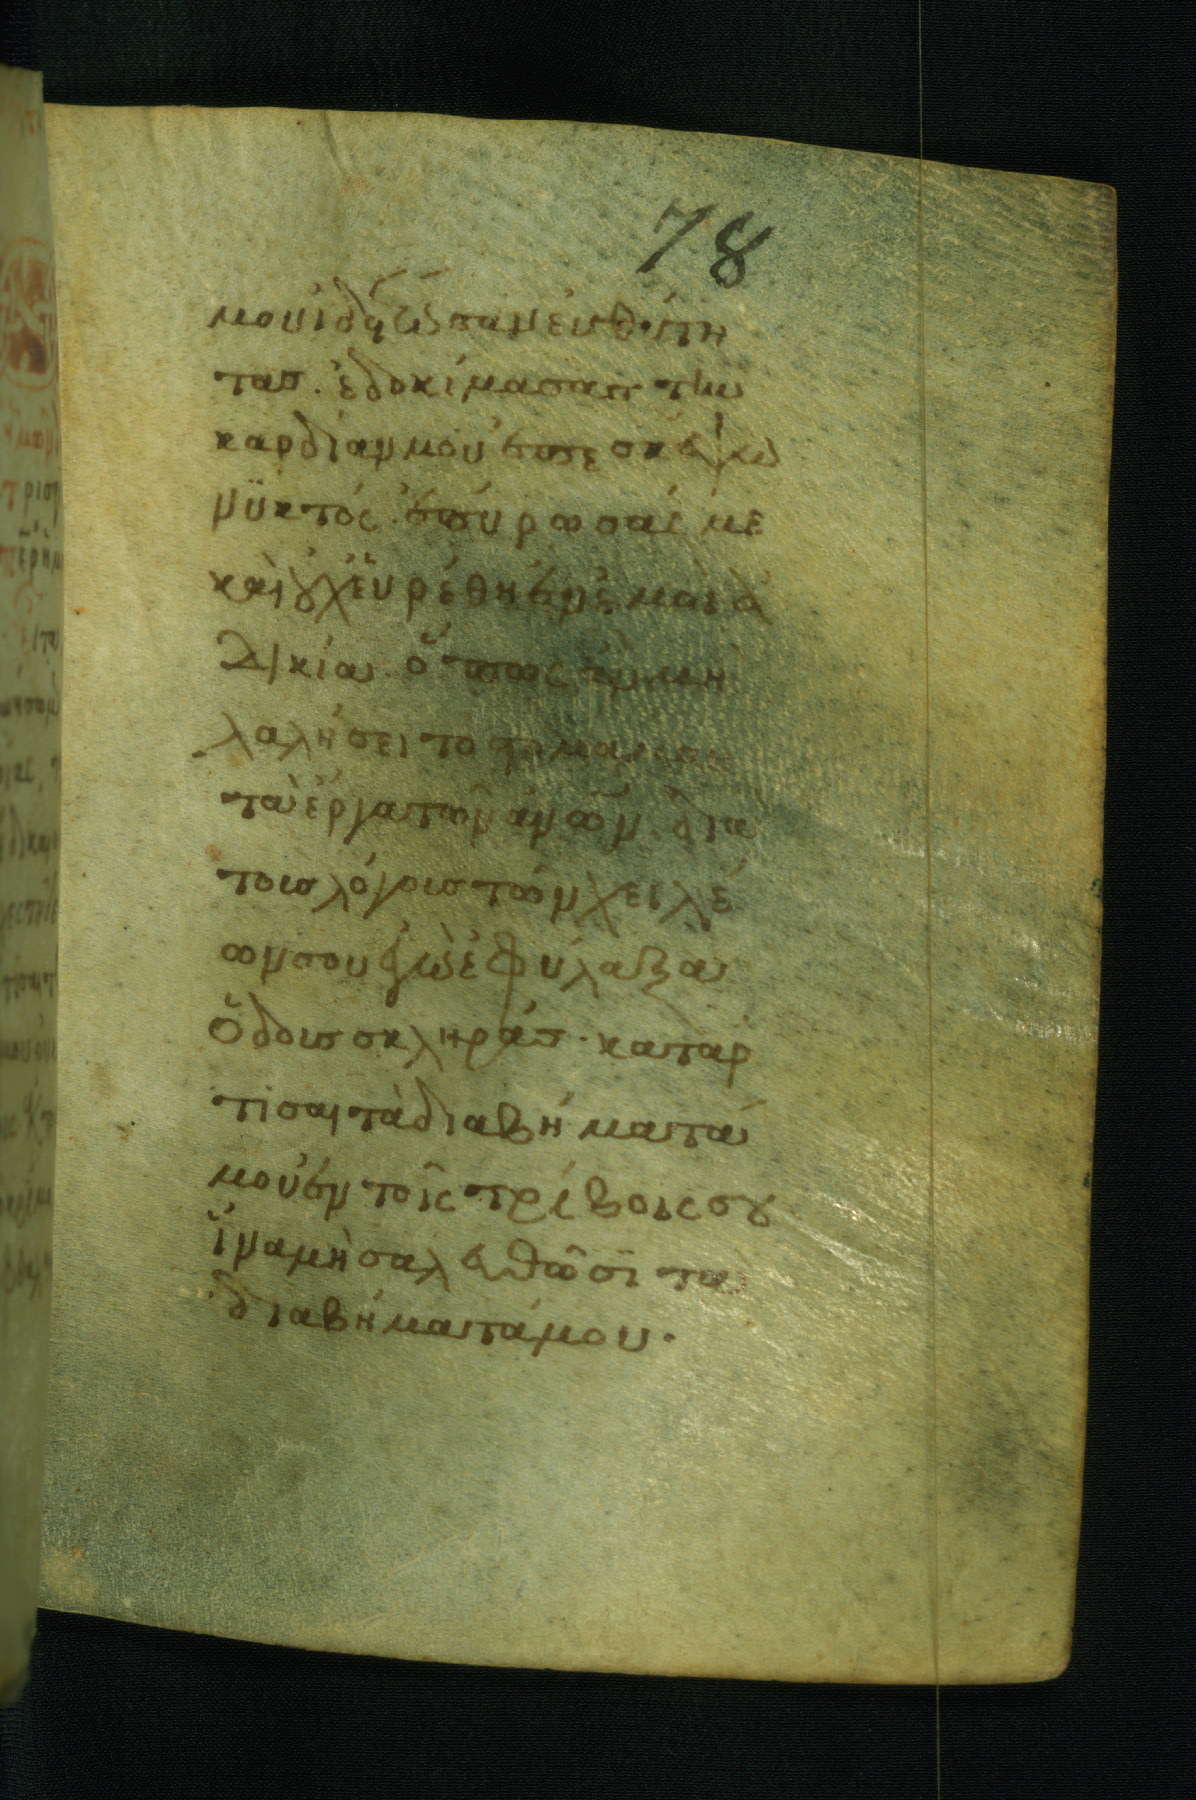 78
μου ἰδέτωσαν εὐθύτη
τας. ἐδοκίμασας τὴν
καρδίαν μου ἐπεσκέψω
νϋκτός. ἐπύρωσάς με
καὶ οὐχ εὑρέθη ἐν ἐμοὶ ἀ
δικία. ὅπως ἂν μὴ
λαλήσει τὸ στόμα μου
τὰ ἔργα τῶν ἀνων. διὰ
τοὺς λόγους τῶν χειλέ
ων σου ἐγὼ ἐφύλαξα
ὁδοὺς σκληράς. καταρ
τίσαι τὰ διαβήματά
μου ἐν τοῖς τρίβοις σου
ἵνα μὴ σαλευθῶσϊ τὰ
διαβήματά μου.